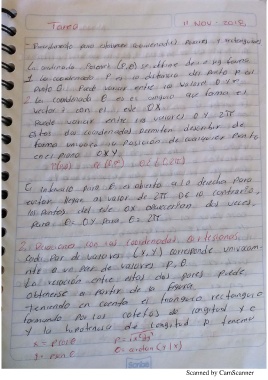 Tarea 11 NOV - 2018
- Procedimiento para obtener coordenadas polares y rectangulares
La ordenada Polares (P, θ) se define de la sig forma
1. La coordenada P es la distancia del punto P al
punto O. Puede variar entre los valores 0 y ∞
2. La coordenada θ es el angulo que forma el
vector con el eje OX
Puede variar entre los valores 0 y 2π
Estas dos coordenadas permiten describir de
forma univoca la posición de cualquier punto
en el plano OXY
C intervalo para θ es abierto a la derecha para
evitar llegar al valor de 2π De lo contrario,
los puntos del eje OX obtendrian dos veces,
para θ = 0 y para θ = 2π
2. Relaciones con las coordenadas cartesianas,
Cada Par de valores (X, Y) corresponde univocam
nte a un Par de valores P, θ.
La relación entre estos dos pares puede
obtenerse a partir de la figura.
- teniendo en cuenta el triangulo rectangulo
formado Por los catetos de longitud x e
y la hipotenusa de longitud p tenemos
Scanned by CamScanner